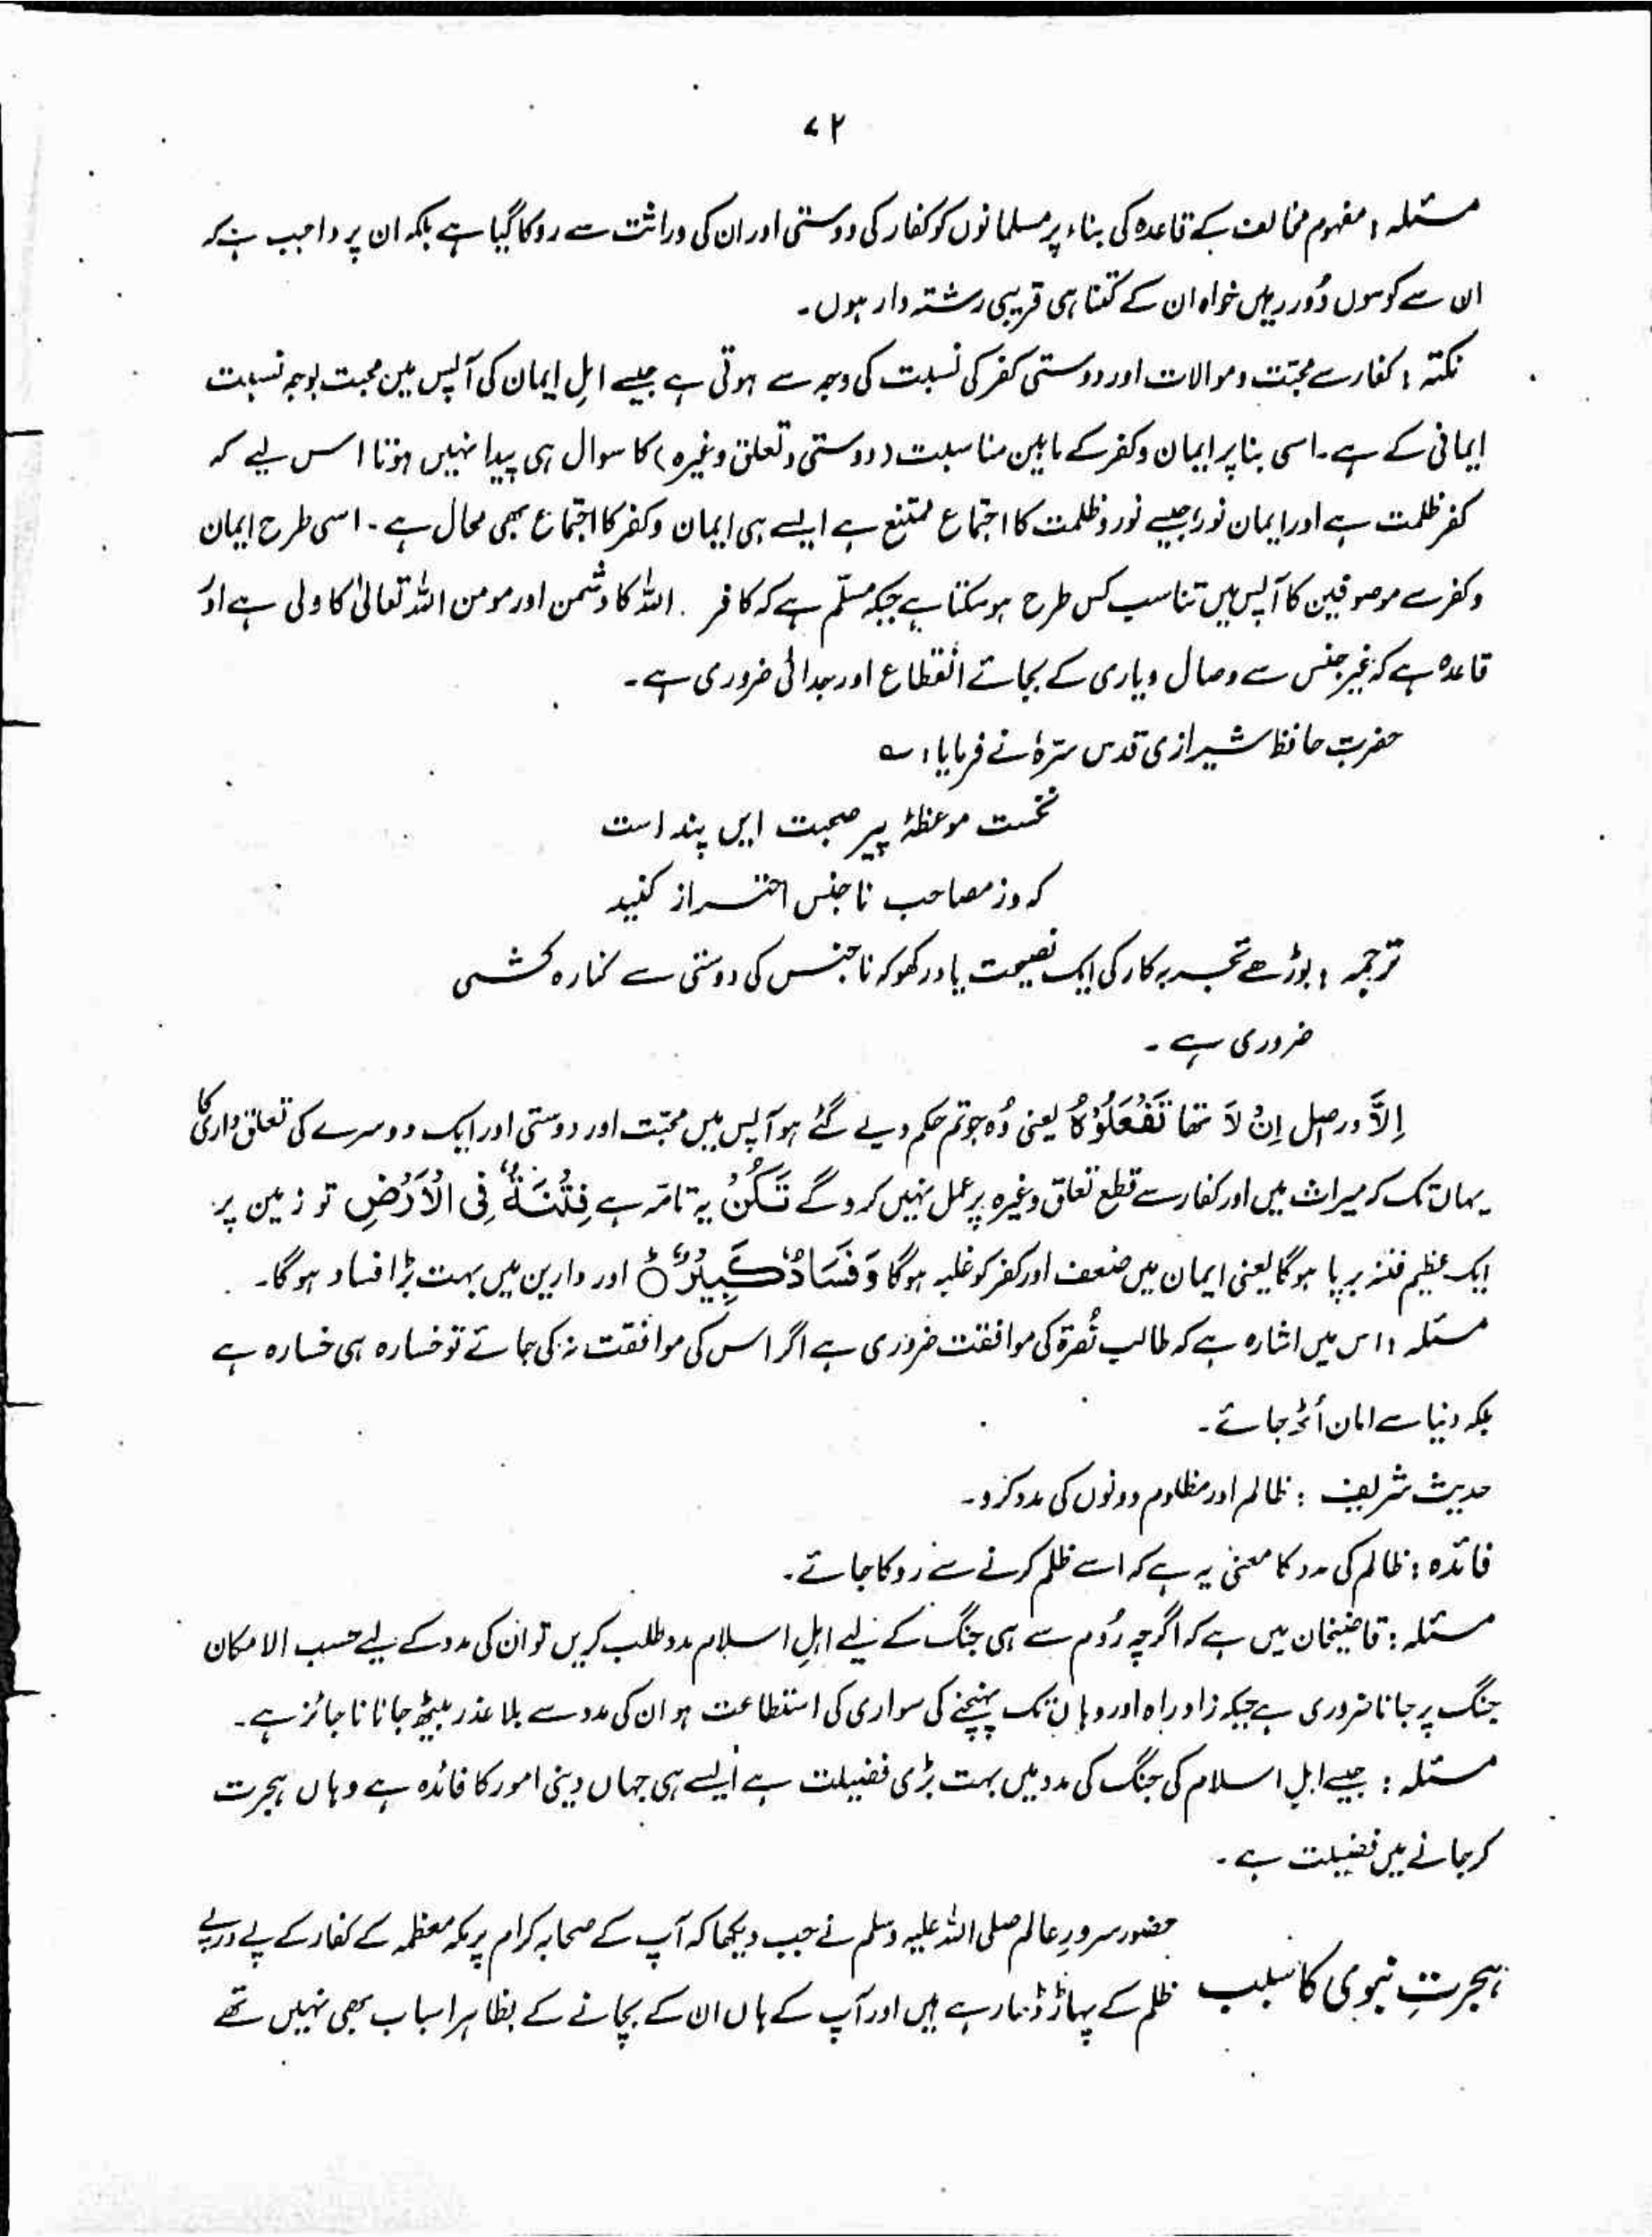 ۷۲
مسئلہ : مفہوم مخالف کے قاعدہ کی بناء پر مسلمانوں کو کفار کی دوستی اور ان کی وراثت سے روکا گیا ہے بلکہ ان پر واجب ہے کہ
ان سے کوسوں دُور رہیں خواہ ان کے کتنا ہی قریبی رشتہ دار ہوں۔
نکتہ : کفار سے محبّت و موالات اور دوستی کفر کی نسبت کی وجہ سے ہوتی ہے جیسے اہلِ ایمان کی آپس میں محبت بوجہ نسبت
ایمانی کے ہے۔ اسی بنا پر ایمان و کفر کے مابین مناسبت (دوستی و تعلق وغیرہ) کا سوال ہی پیدا نہیں ہوتا اس لیے کہ
کفر ظلمت ہے اور ایمان نور، جیسے نور و ظلمت کا اجتماع ممتنع ہے ایسے ہی ایمان و کفر کا اجتماع بھی محال ہے۔ اسی طرح ایمان
و کفر سے موصوفین کا آپس میں تناسب کس طرح ہو سکتا ہے جبکہ مسلّم ہے کہ کافر اللہ کا دشمن اور مومن اللہ تعالیٰ کا ولی ہے اور
قاعدہ ہے کہ غیر جنس سے وصال و یاری کے بجائے انقطاع اور جدائی ضروری ہے۔
حضرت حافظ شیرازی قدس سرّہٗ نے فرمایا : ؎
نخست موعظۂ پیر صحبت ایں پند است
کہ وز مصاحب ناجنس احتراز کنید
ترجمہ : بوڑھے تجربہ کار کی ایک نصیحت یاد رکھو کہ ناجنس کی دوستی سے کنارہ کشی
ضروری ہے۔
اِلَّا دراصل اِنْ لَا تھا تَفْعَلُوْہُ یعنی وُہ جو تم حکم دیے گئے ہو آپس میں محبّت اور دوستی اور ایک دوسرے کی تعلق داری کا
یہاں تک کہ میراث میں اور کفار سے قطع تعلق وغیرہ پر عمل نہیں کرو گے تَکُنْ یہ تامّہ ہے فِتْنَۃٌ فِی الْاَرْضِ تو زمین پر
ایک عظیم فتنہ برپا ہوگا یعنی ایمان میں ضعف اور کفر کو غلبہ ہوگا وَفَسَادٌ کَبِیْرٌ ۝ اور دارین میں بہت بڑا فساد ہوگا۔
مسئلہ : اس میں اشارہ ہے کہ طالب نُصرۃ کی موافقت ضروری ہے اگر اس کی موافقت نہ کی جائے تو خسارہ ہی خسارہ ہے
بلکہ دنیا سے امان اُٹھ جائے۔
حدیث شریف : ظالم اور مظلوم دونوں کی مدد کرو۔
فائدہ : ظالم کی مدد کا معنی یہ ہے کہ اسے ظلم کرنے سے روکا جائے۔
مسئلہ : قاضیخان میں ہے کہ اگرچہ رُوم سے ہی جنگ کے لیے اہلِ اسلام مدد طلب کریں تو ان کی مدد کے لیے حسب الامکان
جنگ پر جانا ضروری ہے جبکہ زادِ راہ اور وہاں تک پہنچنے کی سواری کی استطاعت ہو ان کی مدد سے بلا عذر بیٹھ جانا ناجائز ہے۔
مسئلہ : جیسے اہلِ اسلام کی جنگ کی مدد میں بہت بڑی فضیلت ہے ایسے ہی جہاں دینی امور کا فائدہ ہے وہاں ہجرت
کر جانے میں فضیلت ہے۔
ہجرتِ نبوی کا سبب
حضور سرورِ عالم صلی اللہ علیہ وسلم نے جب دیکھا کہ آپ کے صحابہ کرام پر مکہ معظمہ کے کفار کے پے در پے
ظلم کے پہاڑ ڈھا رہے ہیں اور آپ کے ہاں ان کے بچانے کے بظاہر اسباب بھی نہیں تھے